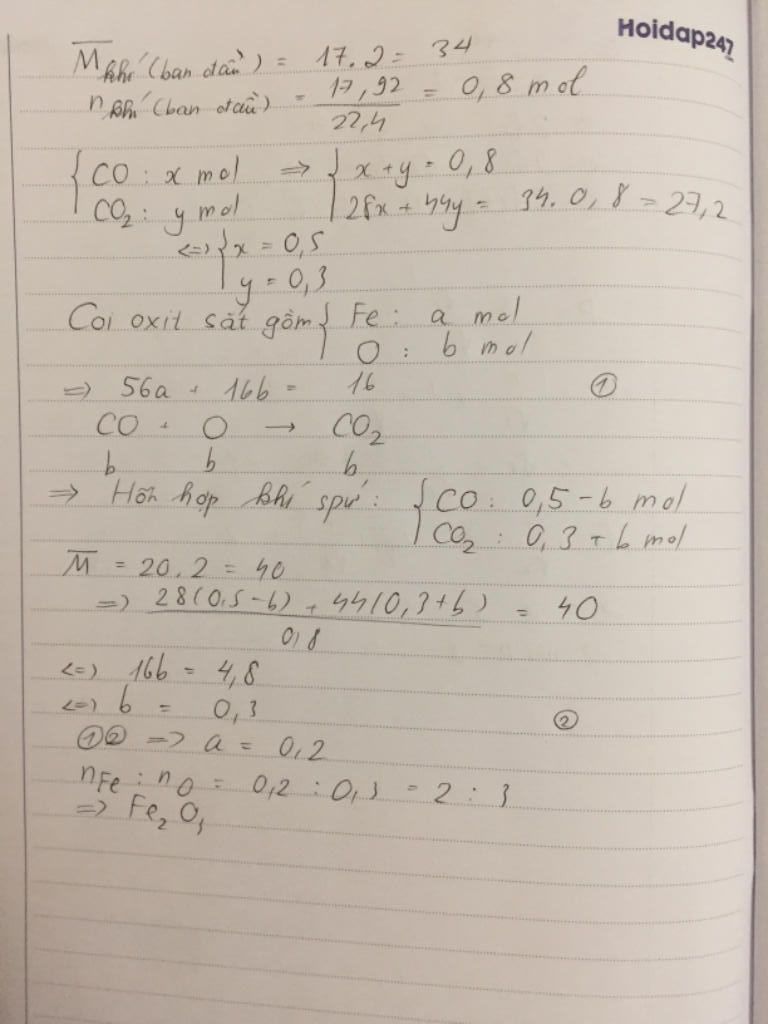 Hoidap247
M̅ khí (ban đầu) = 17.2 = 34
n khí (ban đầu) = 17,92 / 22,4 = 0,8 mol
{ CO : x mol ⇒ { x + y = 0,8
CO₂ : y mol 28x + 44y = 34. 0,8 = 27,2
<=> { x = 0,5
y = 0,3
Coi oxit sắt gồm { Fe : a mol
O : b mol
=> 56a + 16b = 16 ①
CO + O → CO₂
b b b
=> Hỗn hợp khí spứ : { CO : 0,5 - b mol
CO₂ : 0,3 + b mol
M̅ = 20.2 = 40
=> 28(0,5-b) + 44(0,3+b) / 0,8 = 40
<=> 16b = 4,8
<=> b = 0,3 ②
①② => a = 0,2
nFe : nO = 0,2 : 0,3 = 2 : 3
=> Fe₂O₃